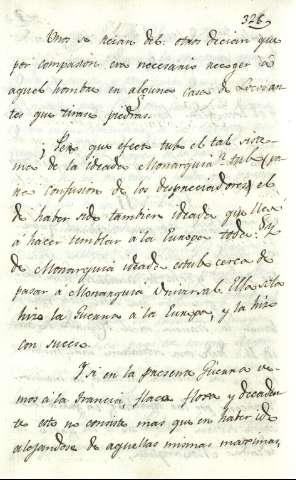 328,
Unos se reian del: otros dician que
por compasion era necesario acoger a
aquel hombre en alguna casa de Locos an-
tes que tirase piedras.
¿Pero que efecto tubo el tal siste-
ma de la ideada Monarquia? tubo (pa-
ra confusion de los despreciadores) el
de haber sido tambien ideada que llegó
a hacer temblar a la Europa toda:
de Monarquia ideada estubo cerca de
pasar a Monarquia Universal. Ella sola
hizo la Guerra a la Europa, y la hizo
con suceso.
Y si en la presente Guerra ve-
mos a la Francia, flaca floxa y decaden-
te esto no consiste mas que en haber ido
alejandose de aquellas mismas maximas,